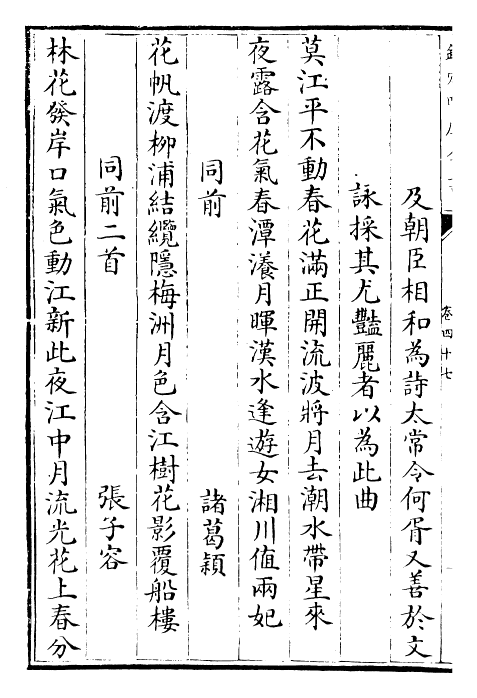 卷四十七
及朝臣相和為詩太常令何胥又善於文
詠採其尤豔麗者以為此曲
莫江平不動春花滿正開流波將月去潮水帶星來
夜露含花氣春潭瀁月暉漢水逢遊女湘川值兩妃
同前 諸葛穎
花帆渡柳浦結纜隱梅洲月色含江樹花影覆船樓
同前二首 張子容
林花發岸口氣色動江新此夜江中月流光花上春分